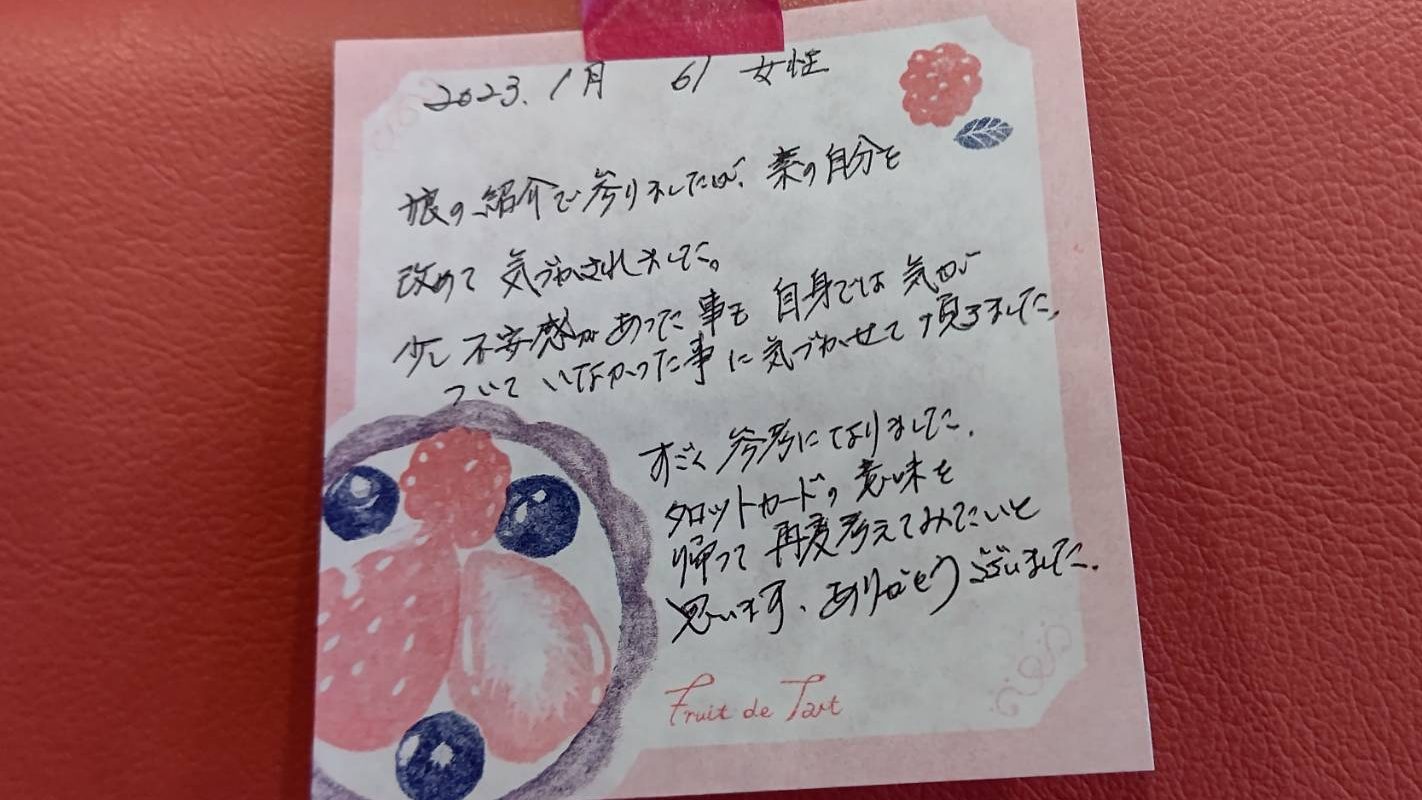 2023. 1月 61 女性
娘の紹介で参りましたが、素の自分を
改めて 気づかされました。
少し 不安感があった事も 自身では 気が
ついて いなかった事 に 気づかせて 頂きました。
すごく 参考になりました。
タロットカードの 意味を
帰って 再度考えてみたいと
思います。ありがとうございました。
Fruit de Tart